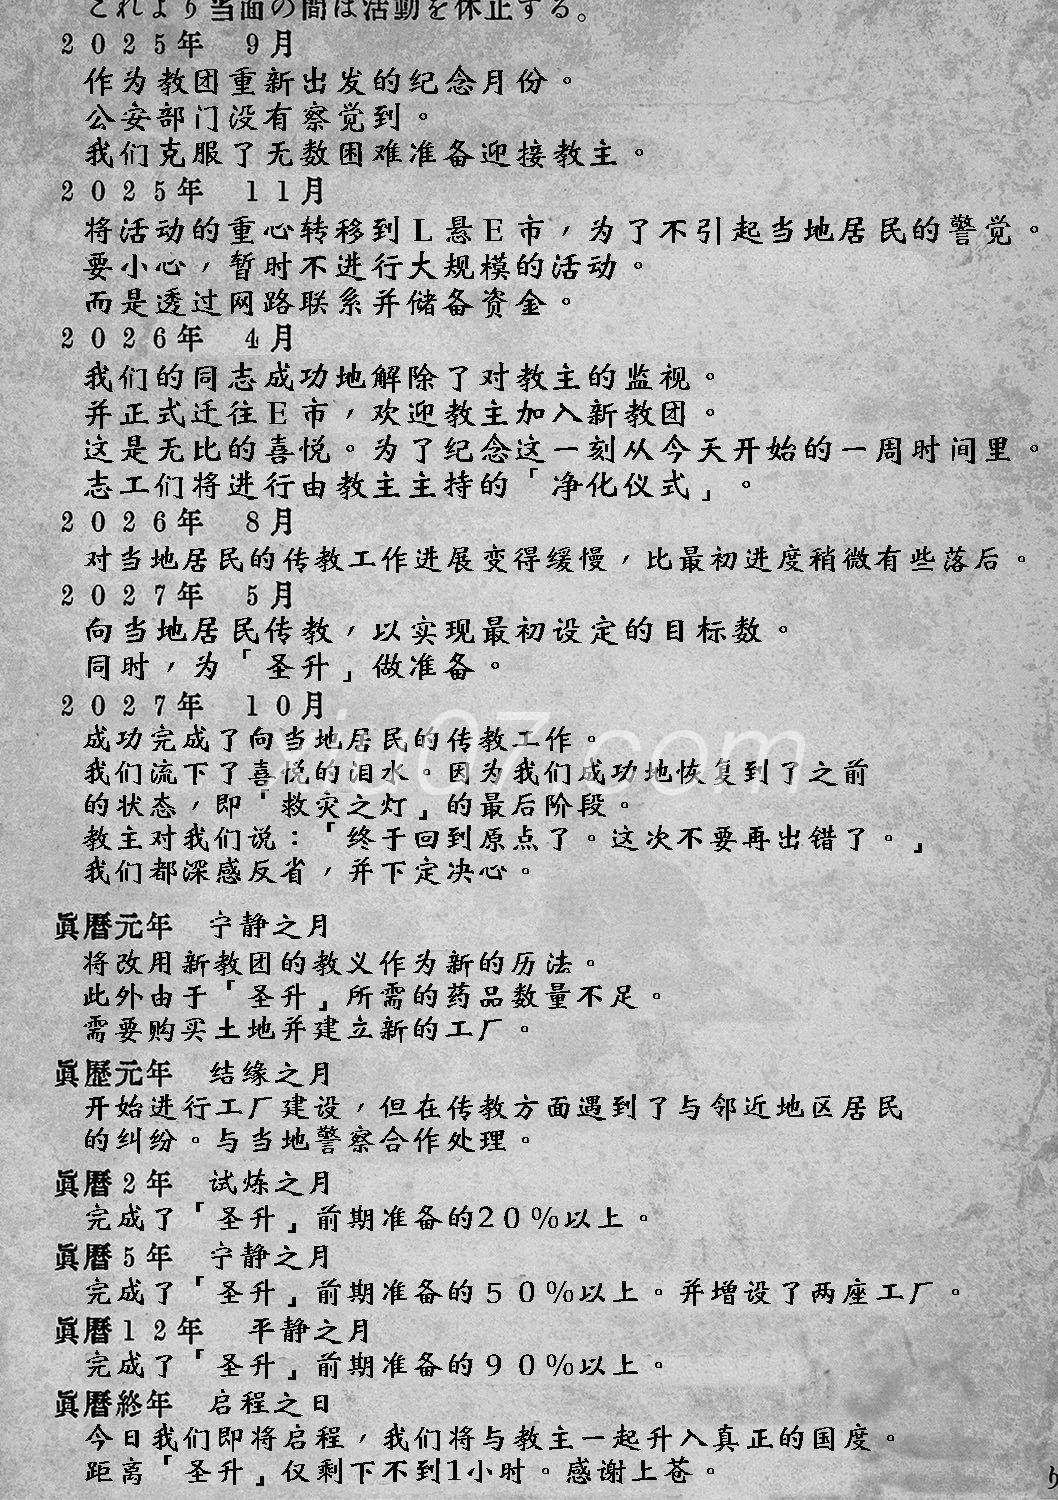 これより当面の間は活動を休止する。
2025年 9月
作为教团重新出发的纪念月份。
公安部门没有察觉到。
我们克服了无数困难准备迎接教主。
2025年 11月
将活动的重心转移到L悬E市，为了不引起当地居民的警觉。
要小心，暂时不进行大规模的活动。
而是透过网路联系并储备资金。
2026年 4月
我们的同志成功地解除了对教主的监视。
并正式迁往E市，欢迎教主加入新教团。
这是无比的喜悦。为了纪念这一刻从今天开始的一周时间里。
志工们将进行由教主主持的「净化仪式」。
2026年 8月
对当地居民的传教工作进展变得缓慢，比最初进度稍微有些落后。
2027年 5月
向当地居民传教，以实现最初设定的目标数。
同时，为「圣升」做准备。
2027年 10月
成功完成了向当地居民的传教工作。
我们流下了喜悦的泪水。因为我们成功地恢复到了之前
的状态，即「救灾之灯」的最后阶段。
教主对我们说：「终于回到原点了。这次不要再出错了。」
我们都深感反省，并下定决心。
眞暦元年 宁静之月
将改用新教团的教义作为新的历法。
此外由于「圣升」所需的药品数量不足。
需要购买土地并建立新的工厂。
眞歴元年 结缘之月
开始进行工厂建设，但在传教方面遇到了与邻近地区居民
的纠纷。与当地警察合作处理。
眞暦2年 试炼之月
完成了「圣升」前期准备的20%以上。
眞暦5年 宁静之月
完成了「圣升」前期准备的50%以上。并增设了两座工厂。
眞暦12年 平静之月
完成了「圣升」前期准备的90%以上。
眞暦終年 启程之日
今日我们即将启程，我们将与教主一起升入真正的国度。
距离「圣升」仅剩下不到1小时。感谢上苍。